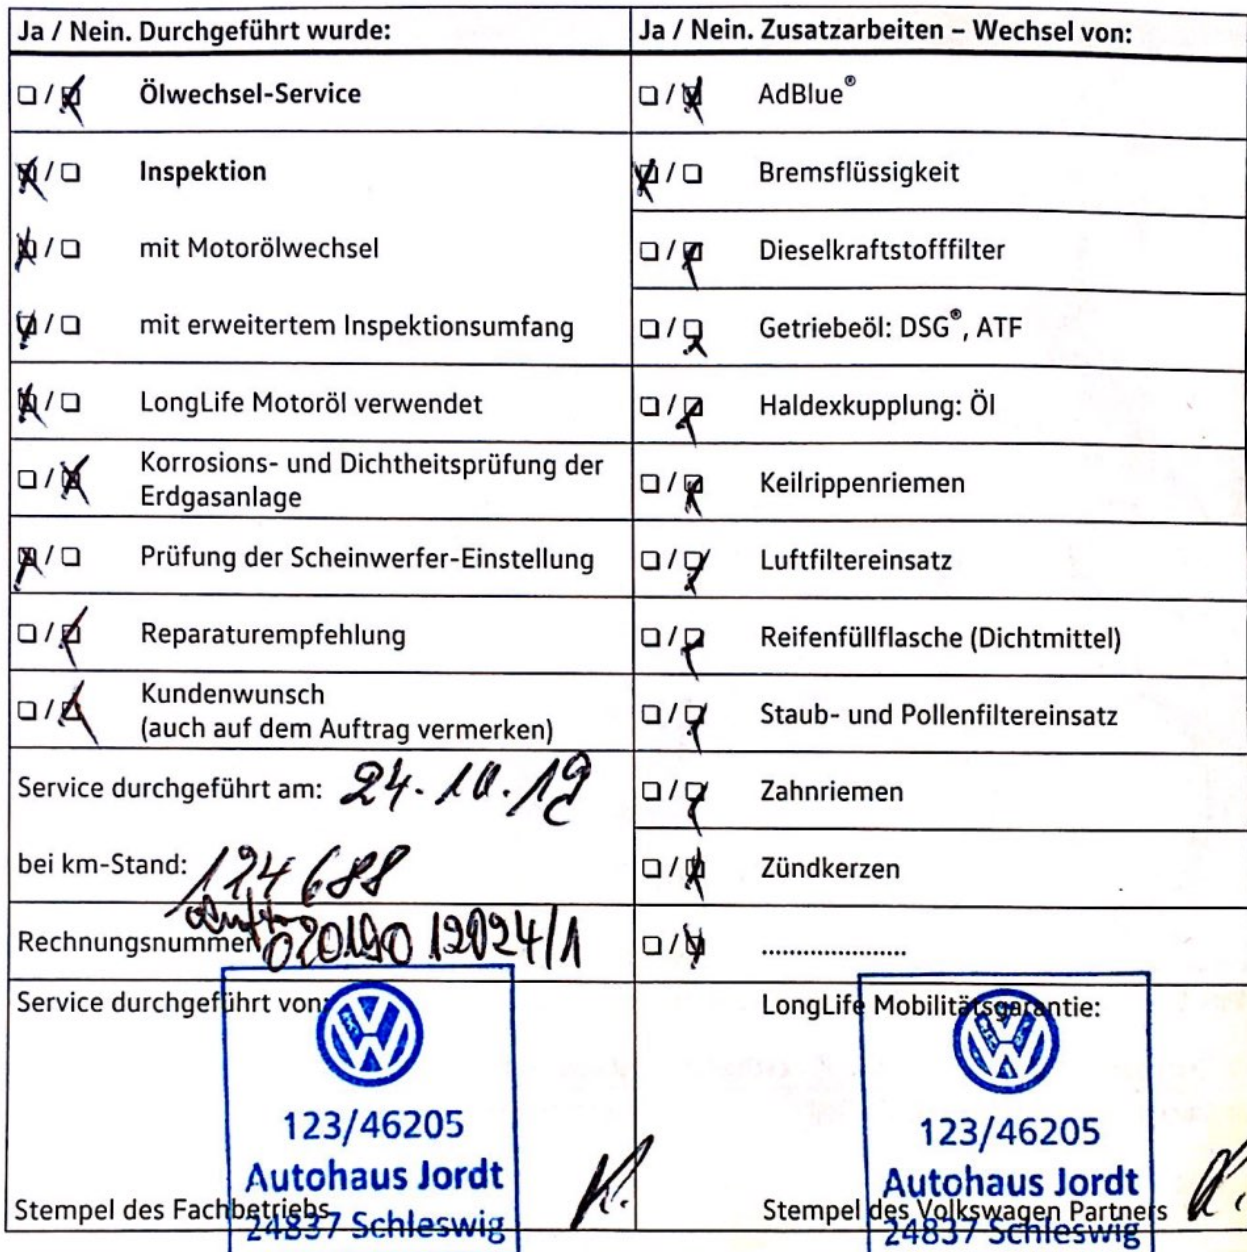 Ja / Nein. Durchgeführt wurde:
Ölwechsel-Service
Inspektion
mit Motorölwechsel
mit erweitertem Inspektionsumfang
LongLife Motoröl verwendet
Korrosions- und Dichtheitsprüfung der
Erdgasanlage
Prüfung der Scheinwerfer-Einstellung
Reparaturempfehlung
Kundenwunsch
(auch auf dem Auftrag vermerken)
Service durchgeführt am: 24.10.19
bei km-Stand: 124 688
Rechnungsnummer
Service durchgeführt von:
123/46205
Autohaus Jordt
24837 Schleswig
Stempel des Fachbetriebs
Ja / Nein. Zusatzarbeiten – Wechsel von:
AdBlue®
Bremsflüssigkeit
Dieselkraftstofffilter
Getriebeöl: DSG®, ATF
Haldexkupplung: Öl
Keilrippenriemen
Luftfiltereinsatz
Reifenfüllflasche (Dichtmittel)
Staub- und Pollenfiltereinsatz
Zahnriemen
Zündkerzen
.....................
LongLife Mobilitätsgarantie:
123/46205
Autohaus Jordt
24837 Schleswig
Stempel des Volkswagen Partners